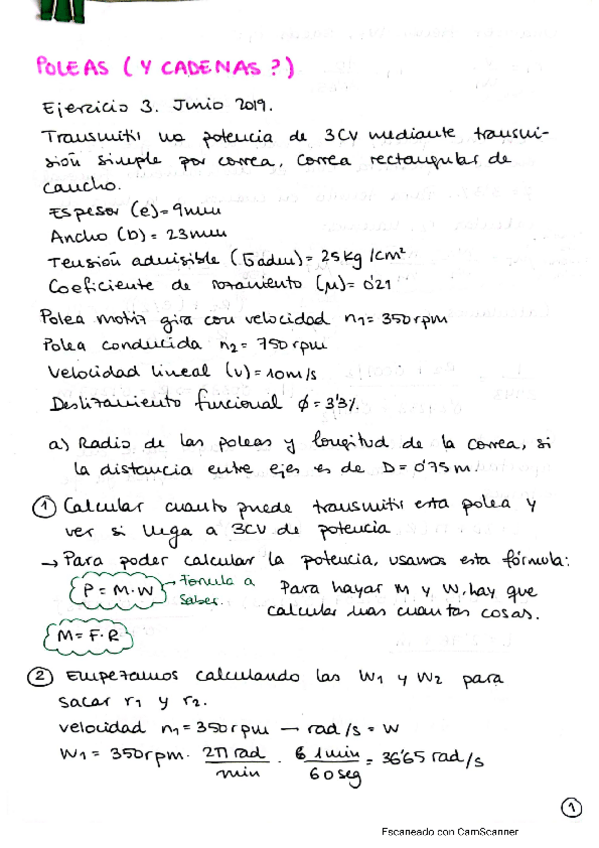 POLEAS (Y CADENAS?)
Ejercicio 3. Junio 2019.
Transmitir una potencia de 3CV mediante transmi-
sión simple por correa. Correa rectangular de
caucho.
Espesor (e) = 9mm
Ancho (b) = 23mm
Tensión admisible (σadm) = 25kg/cm²
Coeficiente de rozamiento (μ) = 0'21
Polea motriz gira con velocidad n1 = 350rpm
Polea conducida n2 = 750rpm
Velocidad lineal (v) = 10m/s
Deslizamiento funcional ϕ = 3'3%.
a) Radio de las poleas y longitud de la correa, si
la distancia entre ejes es de D = 0'75m.
① Calcular cuanto puede transmitir esta polea y
ver si llega a 3CV de potencia
→ Para poder calcular la potencia, usamos esta fórmula:
P = M·W → Fórmula a saber. Para hayar M y W, hay que
M = F·R calcular unas cuantas cosas.
② Empezamos calculando las W1 y W2 para
sacar r1 y r2.
velocidad n1 = 350rpm → rad/s = W
W1 = 350rpm · 2π rad/min · 1min/60seg = 36'65 rad/s
①
Escaneado con CamScanner